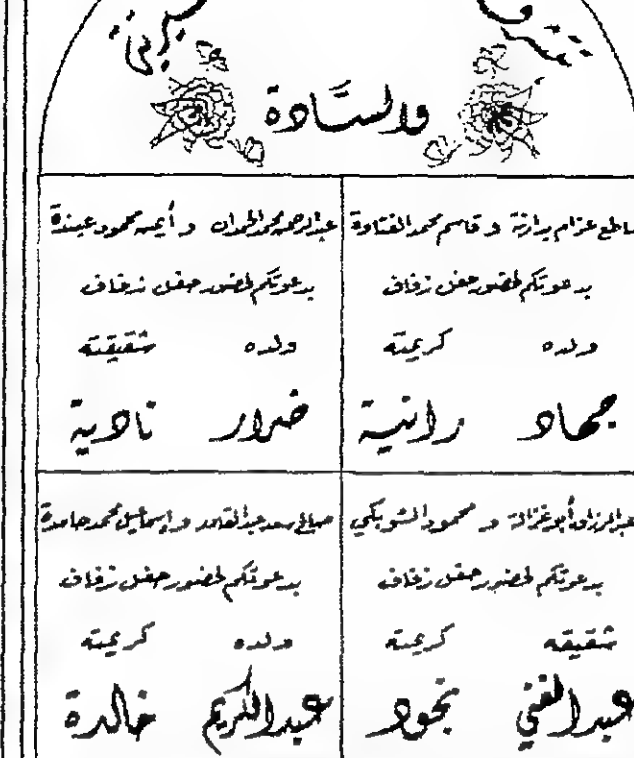 والسَّادة
ساطع عزام برازنة و قاسم محمد الفتاوة
بدعوتكم لحضور حفل زفاف
ولده كريمته
جهاد رانية
عبدالرحمن محمد الحمدان و أيمن محمود عبندة
بدعوتكم لحضور حفل زفاف
ولده شقيقته
ضرار نادية
عبدالرزاق أبو غزالة و محمود الشوبكي
بدعوتكم لحضور حفل زفاف
شقيقه كريمته
عبدالغني نجود
صالح سعد عبدالقامد و إسماعيل محمد حامدة
بدعوتكم لحضور حفل زفاف
ولده كريمته
عبدالكريم خالدة